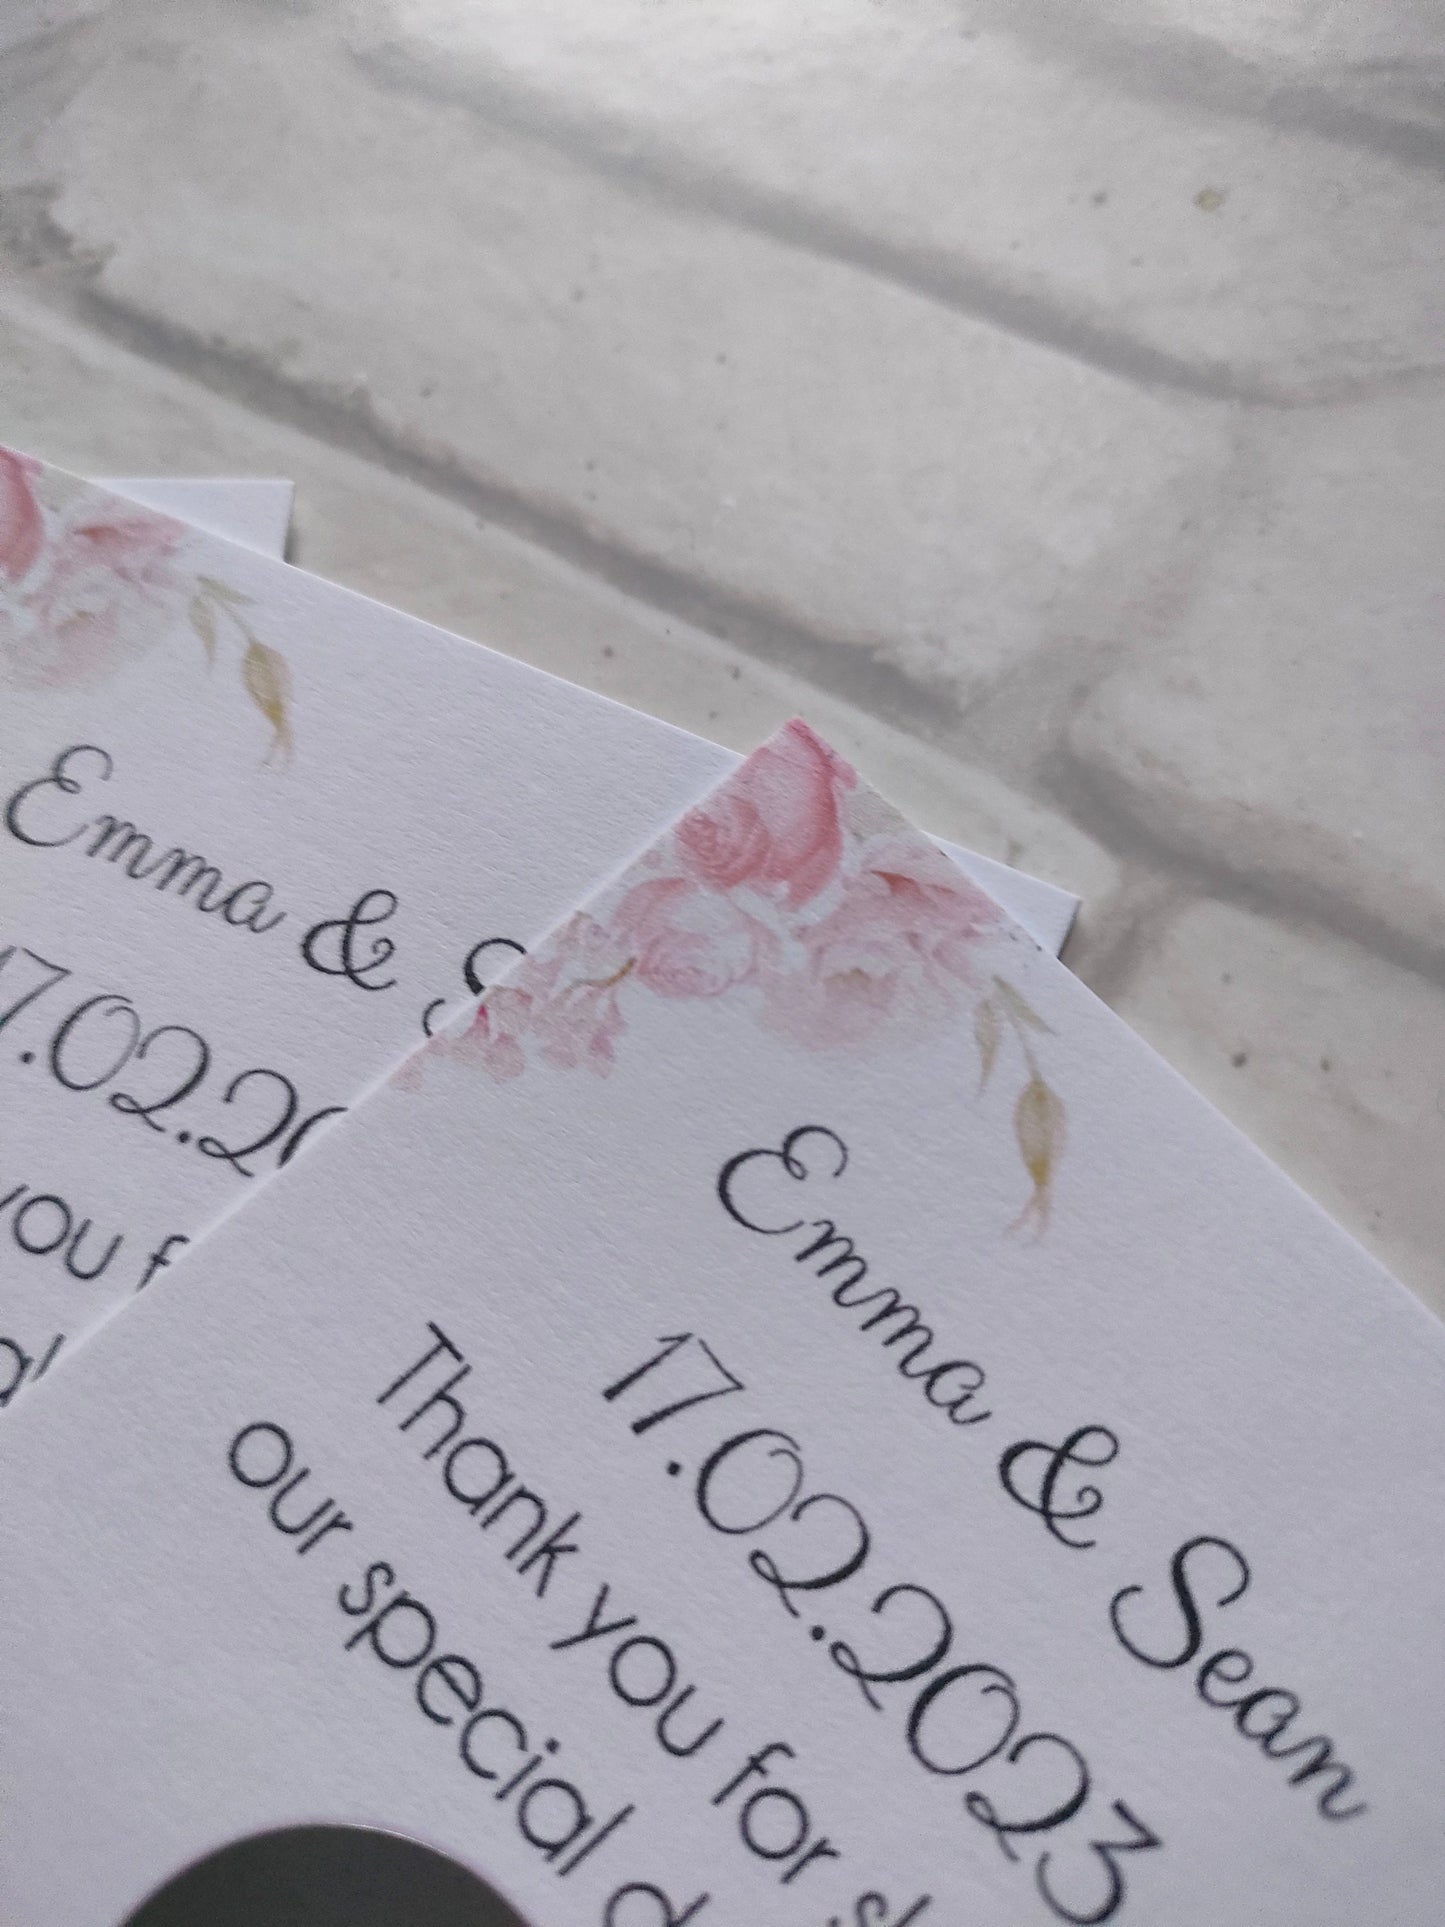 Emma &
17.02.20
you f
Emma & Sean
17.02.2023
Thank you for
our special